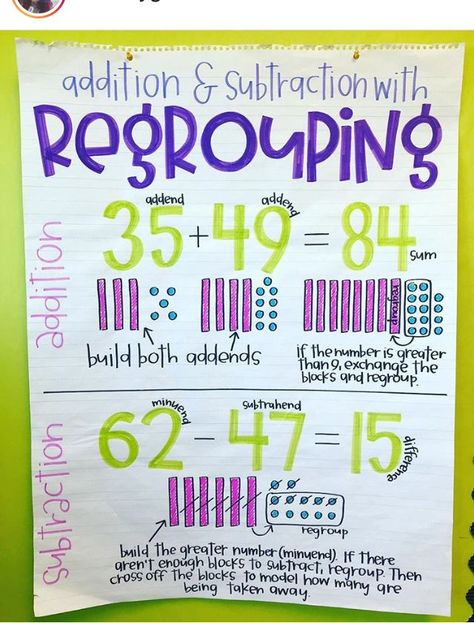 addition & subtraction with
REGROUPING
addition
addend
addend
35 + 49 = 84
sum
regroup
build both addends
if the number is greater
than 9, exchange the
blocks and regroup.
subtraction
minuend
subtrahend
62 - 47 = 15
difference
regroup
build the greater number (minuend). If there
aren't enough blocks to subtract, regroup. Then
cross off the blocks to model how many are
being taken away.